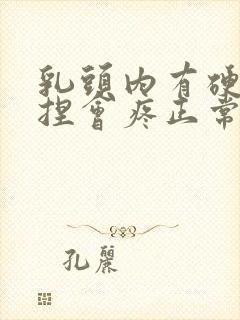 乳頭内有硬
捏會疼正常
孔麗